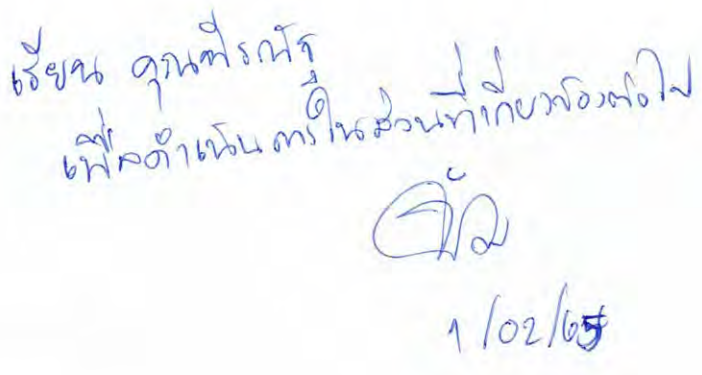 เรียน คุณพีรณัฐ
เพื่อดำเนินการในส่วนที่เกี่ยวข้องต่อไป
1/02/65